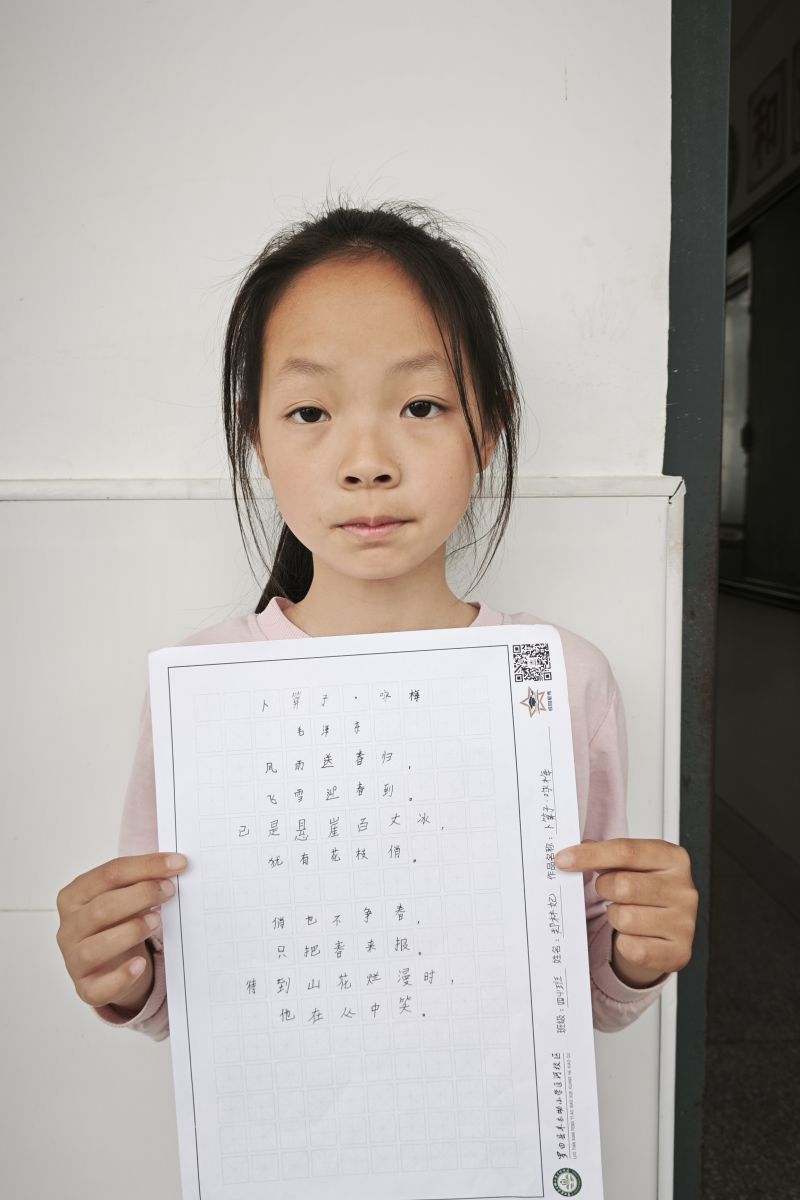 卜算子·咏梅
毛泽东
风雨送春归，
飞雪迎春到。
已是悬崖百丈冰，
犹有花枝俏。
俏也不争春，
只把春来报。
待到山花烂漫时，
他在丛中笑。
作品名称：卜算子·咏梅
姓名：郑梓妃
班级：四(4)班
罗田县
和